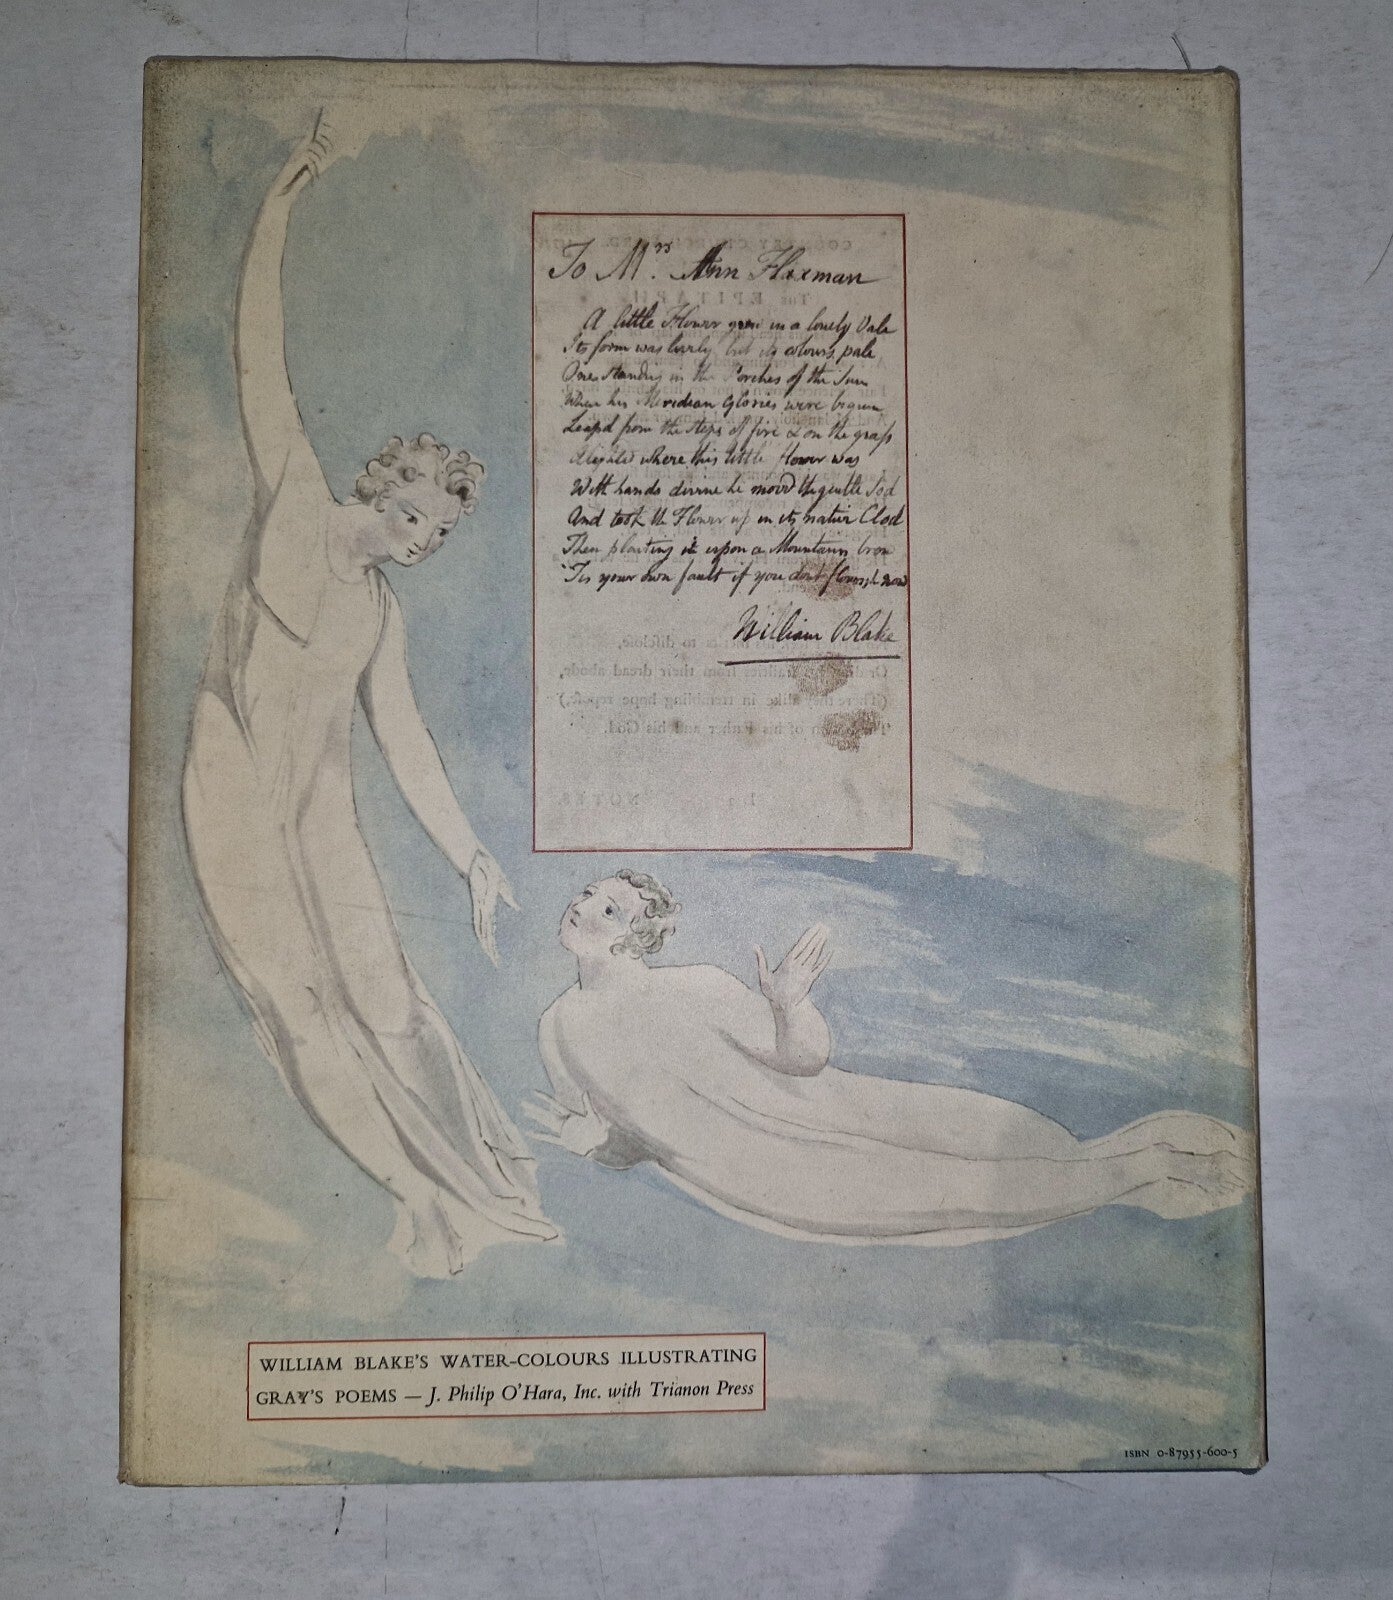 To Mrs. Ann Flaxman
A little Flower grew in a lonely Vale
Its form was lovely but its colours, pale
One standing in the Porches of the Sun
When his Meridian Glories were begun
Leapd from the steps of fire & on the grass
Alighted where this little flower was
With hands divine he movd the gentle Sod
And took the Flower up in its native Clod
Then planting it upon a Mountains brow
'Tis your own fault if you dont flourish now
William Blake
to disclose,
frailties from their dread abode,
(There they alike in trembling hope repose,)
of his Father and his God.
NOTES.
WILLIAM BLAKE'S WATER-COLOURS ILLUSTRATING
GRAY'S POEMS — J. Philip O'Hara, Inc. with Trianon Press
ISBN 0-87955-600-5